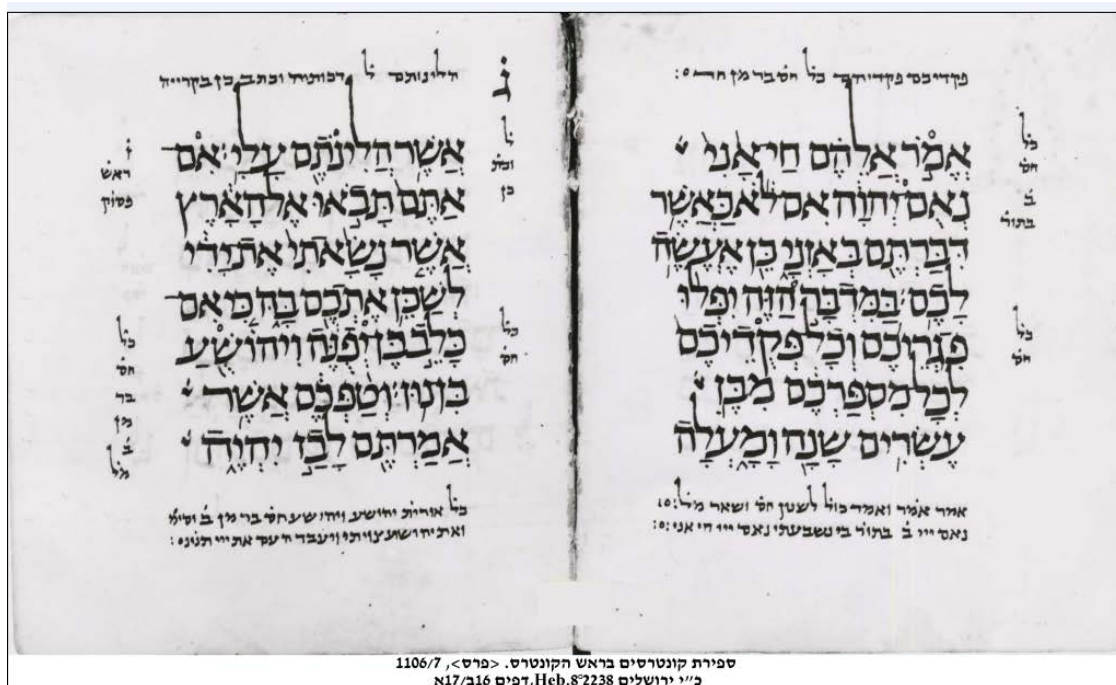 פקדיכם פקדיהם כל חס בר מן חד :
כל
חס
ב
בתור
אֱמֹר אֲלֵהֶם חַי אָנִי
נְאֻם יְהוָה אִם לֹא כַּאֲשֶׁר
דִּבַּרְתֶּם בְּאָזְנָי כֵּן אֶעֱשֶׂה
לָכֶם׃ בַּמִּדְבָּר הַזֶּה יִפְּלוּ
פִגְרֵיכֶם וְכָל פְּקֻדֵיכֶם
לְכָל מִסְפַּרְכֶם מִבֶּן
עֶשְׂרִים שָׁנָה וָמָעְלָה
כל
חס
אמר אמר ואמר כול לשטן חס ושאר מל :
נאם ייי ב בתור בי נשבעתי נאם ייי חי אני :
הלינותם ל דכותיה וכתב כן בקרייה
ל
ומל
כן
אֲשֶׁר הֲלִינֹתֶם עָלָי׃ אִם
אַתֶּם תָּבֹאוּ אֶל הָאָרֶץ
אֲשֶׁר נָשָׂאתִי אֶת יָדִי
לְשַׁכֵּן אֶתְכֶם בָּהּ כִּי אִם
כָּלֵב בֶּן יְפֻנֶּה וִיהוֹשֻׁעַ
בִּן נוּן׃ וְטַפְּכֶם אֲשֶׁר
אֲמַרְתֶּם לָבַז יִהְיֶה
ז
ראש
פסוק
כל
חס
כל
חס
בר
מן
ב
מל
כל אורית יהושע ויהושע חס בר מן ב
ואת יהושוע צויתי ויעבד העם את ייי
ספירת קונטרסים בראש הקונטרס. <פרס>, 1106/7
כ״י ירושלים Heb.8°2238, דפים 16ב/17א